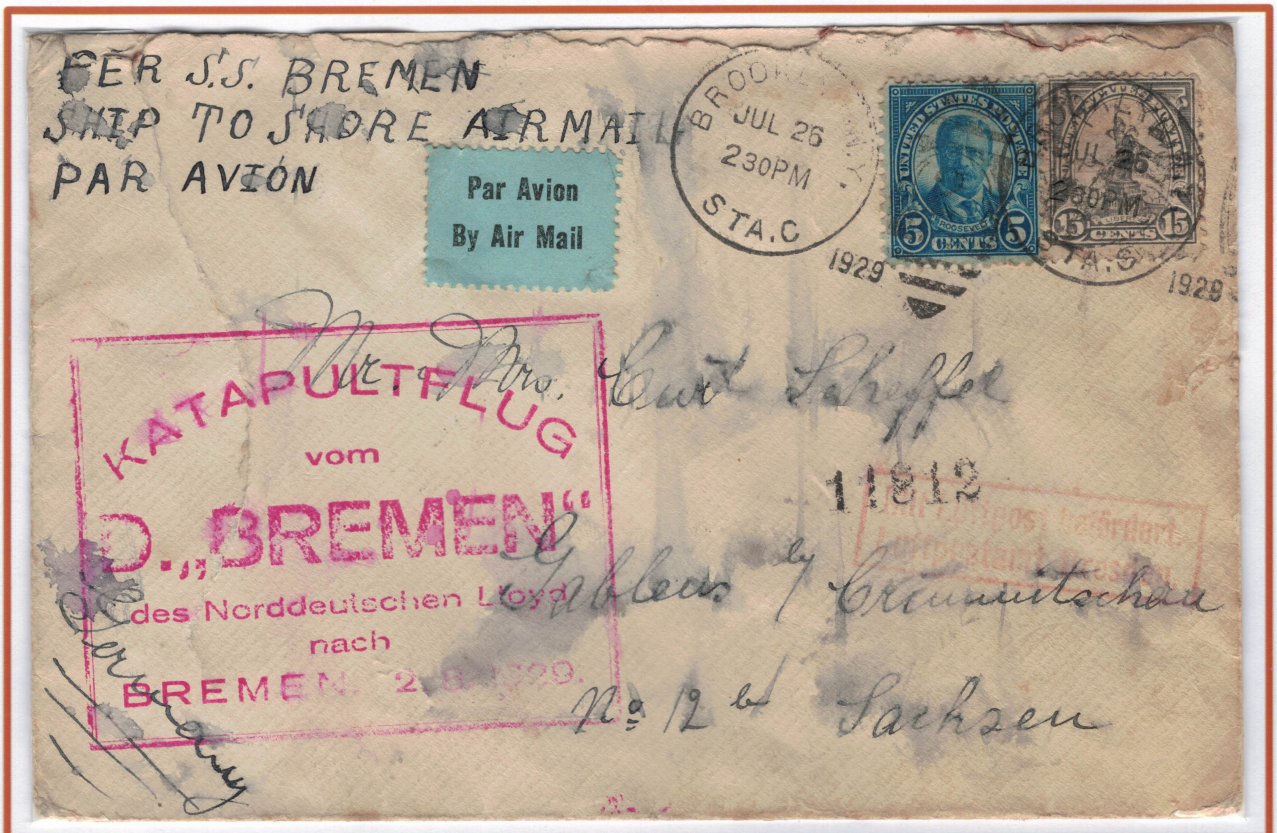 PER S.S. BREMEN
SHIP TO SHORE AIRMAIL
PAR AVION
Par Avion
By Air Mail
BROOKLYN N.Y.
JUL 26
230PM
STA.C
1929
UNITED STATES POSTAGE
ROOSEVELT
5 CENTS 5
JUL 26
230PM
STA.S
1929
15 CENTS 15
Mr. Mrs. Curt Scheffel
KATAPULTFLUG
vom
D. „BREMEN“
des Norddeutschen Lloyd
nach
BREMEN. 2.8.1929.
11812
befördert.
Luftpostamt
Gablenz by Crimmitschau
No 12 b Sachsen
Germany